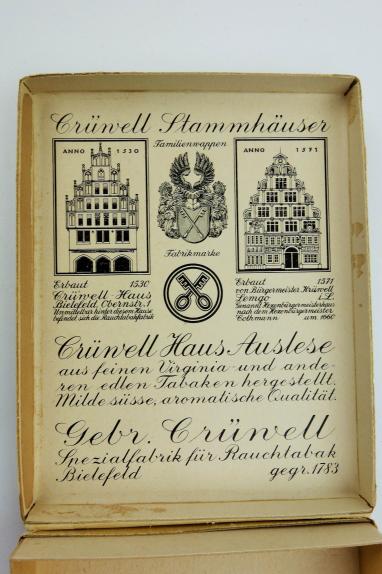 Crüwell Stammhäuser
ANNO 1530
Familienwappen
ANNO 1571
Fabrikmarke
Erbaut 1530
Crüwell-Haus
Bielefeld, Obernstr. 1
Unmittelbar hinter diesem Hause
befindet sich die Rauchtabakfabrik
Erbaut 1571
von Bürgermeister Krüwell
Lemgo i.L.
genannt Hexenbürgermeisterhaus
nach dem Hexenbürgermeister
Cothmann um 1660
Crüwell Haus-Auslese
aus feinen Virginia- und ande-
ren edlen Tabaken hergestellt.
Milde süsse, aromatische Qualität.
Gebr. Crüwell
Spezialfabrik für Rauchtabak
Bielefeld gegr. 1783